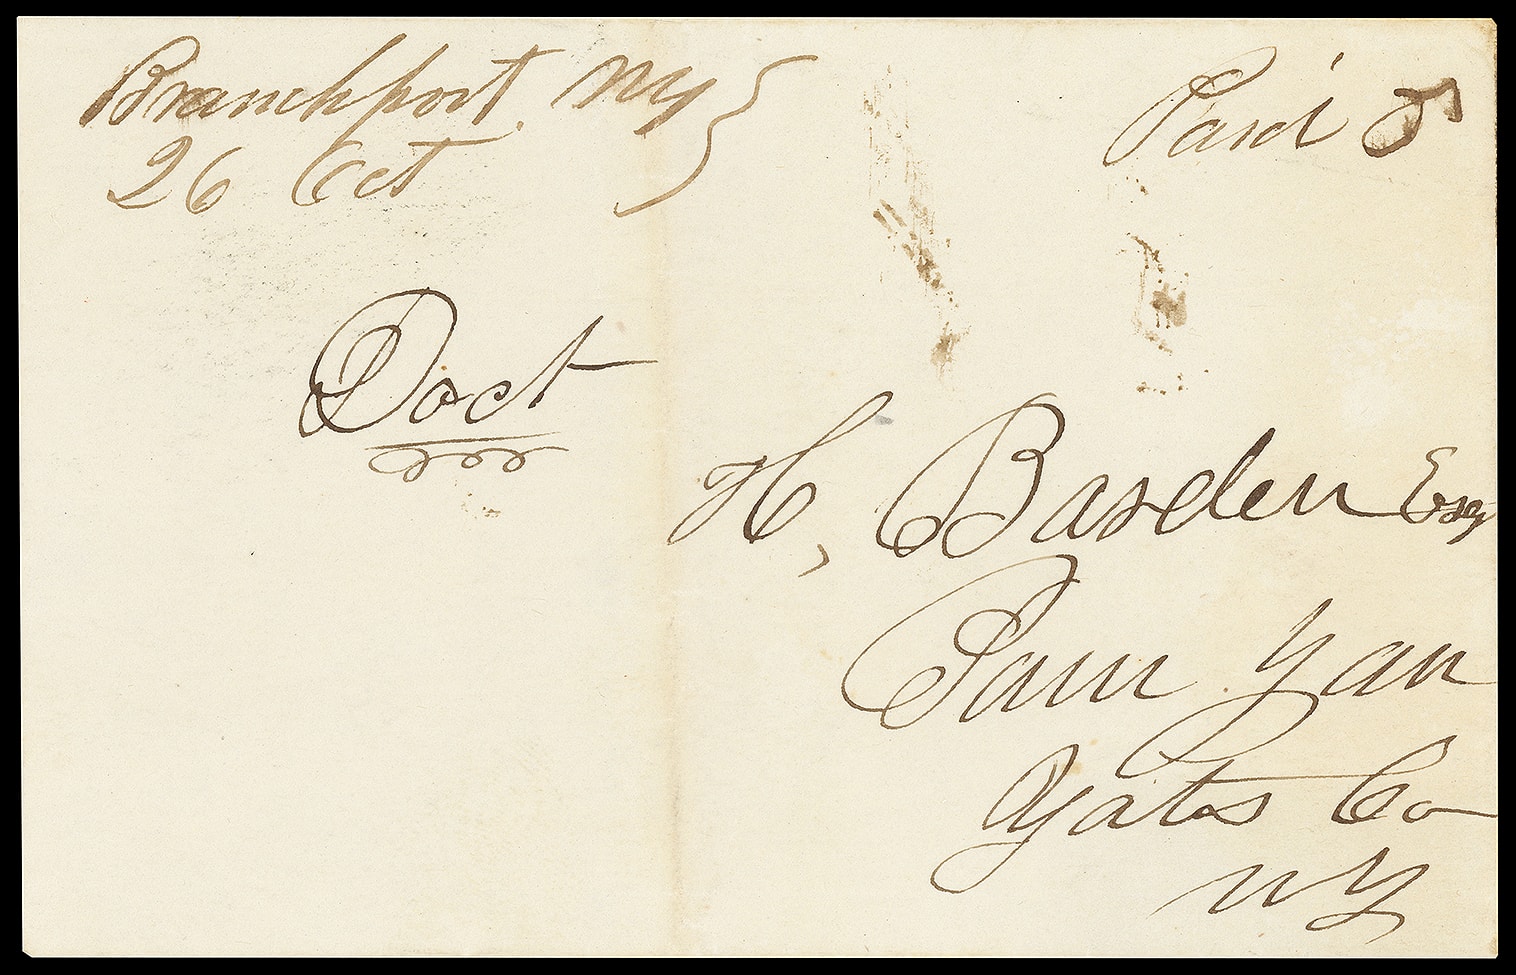 Branchport NY
26 Oct
Paid 5
Doct
H, Barden Esq
Penn Yan
Yates Co
NY